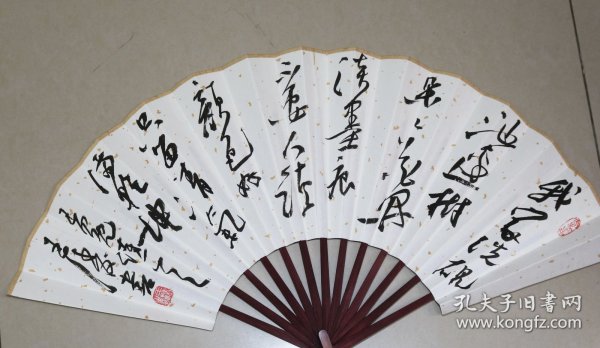 我家洗砚
池边树
朵朵花开
淡墨痕
不要人夸
颜色好
只留清气
满乾坤
孔夫子旧书网
www.kongfz.com